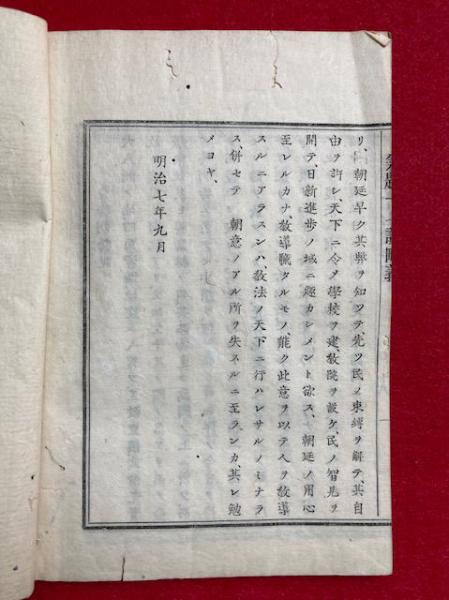 リ、朝廷早ク其弊ヲ知ツテ、先ツ民ノ束縛ヲ解テ、其自
由ヲ許シ、天下ニ令メ學校ヲ建敎院ヲ設ケ、民ノ智見ヲ
開テ、日新進歩ノ域ニ趣カシメント欲ス、朝廷ノ用心
至レルカナ、敎導職タルモノ、能ク此意ヲ以テ人ヲ敎導
スルニアラスンハ、敎法ノ天下ニ行ハレサルノミナラ
ス、併セテ 朝意ノアル所ヲ失スルニ至ランカ、其レ勉
メヨヤ、
明治七年九月